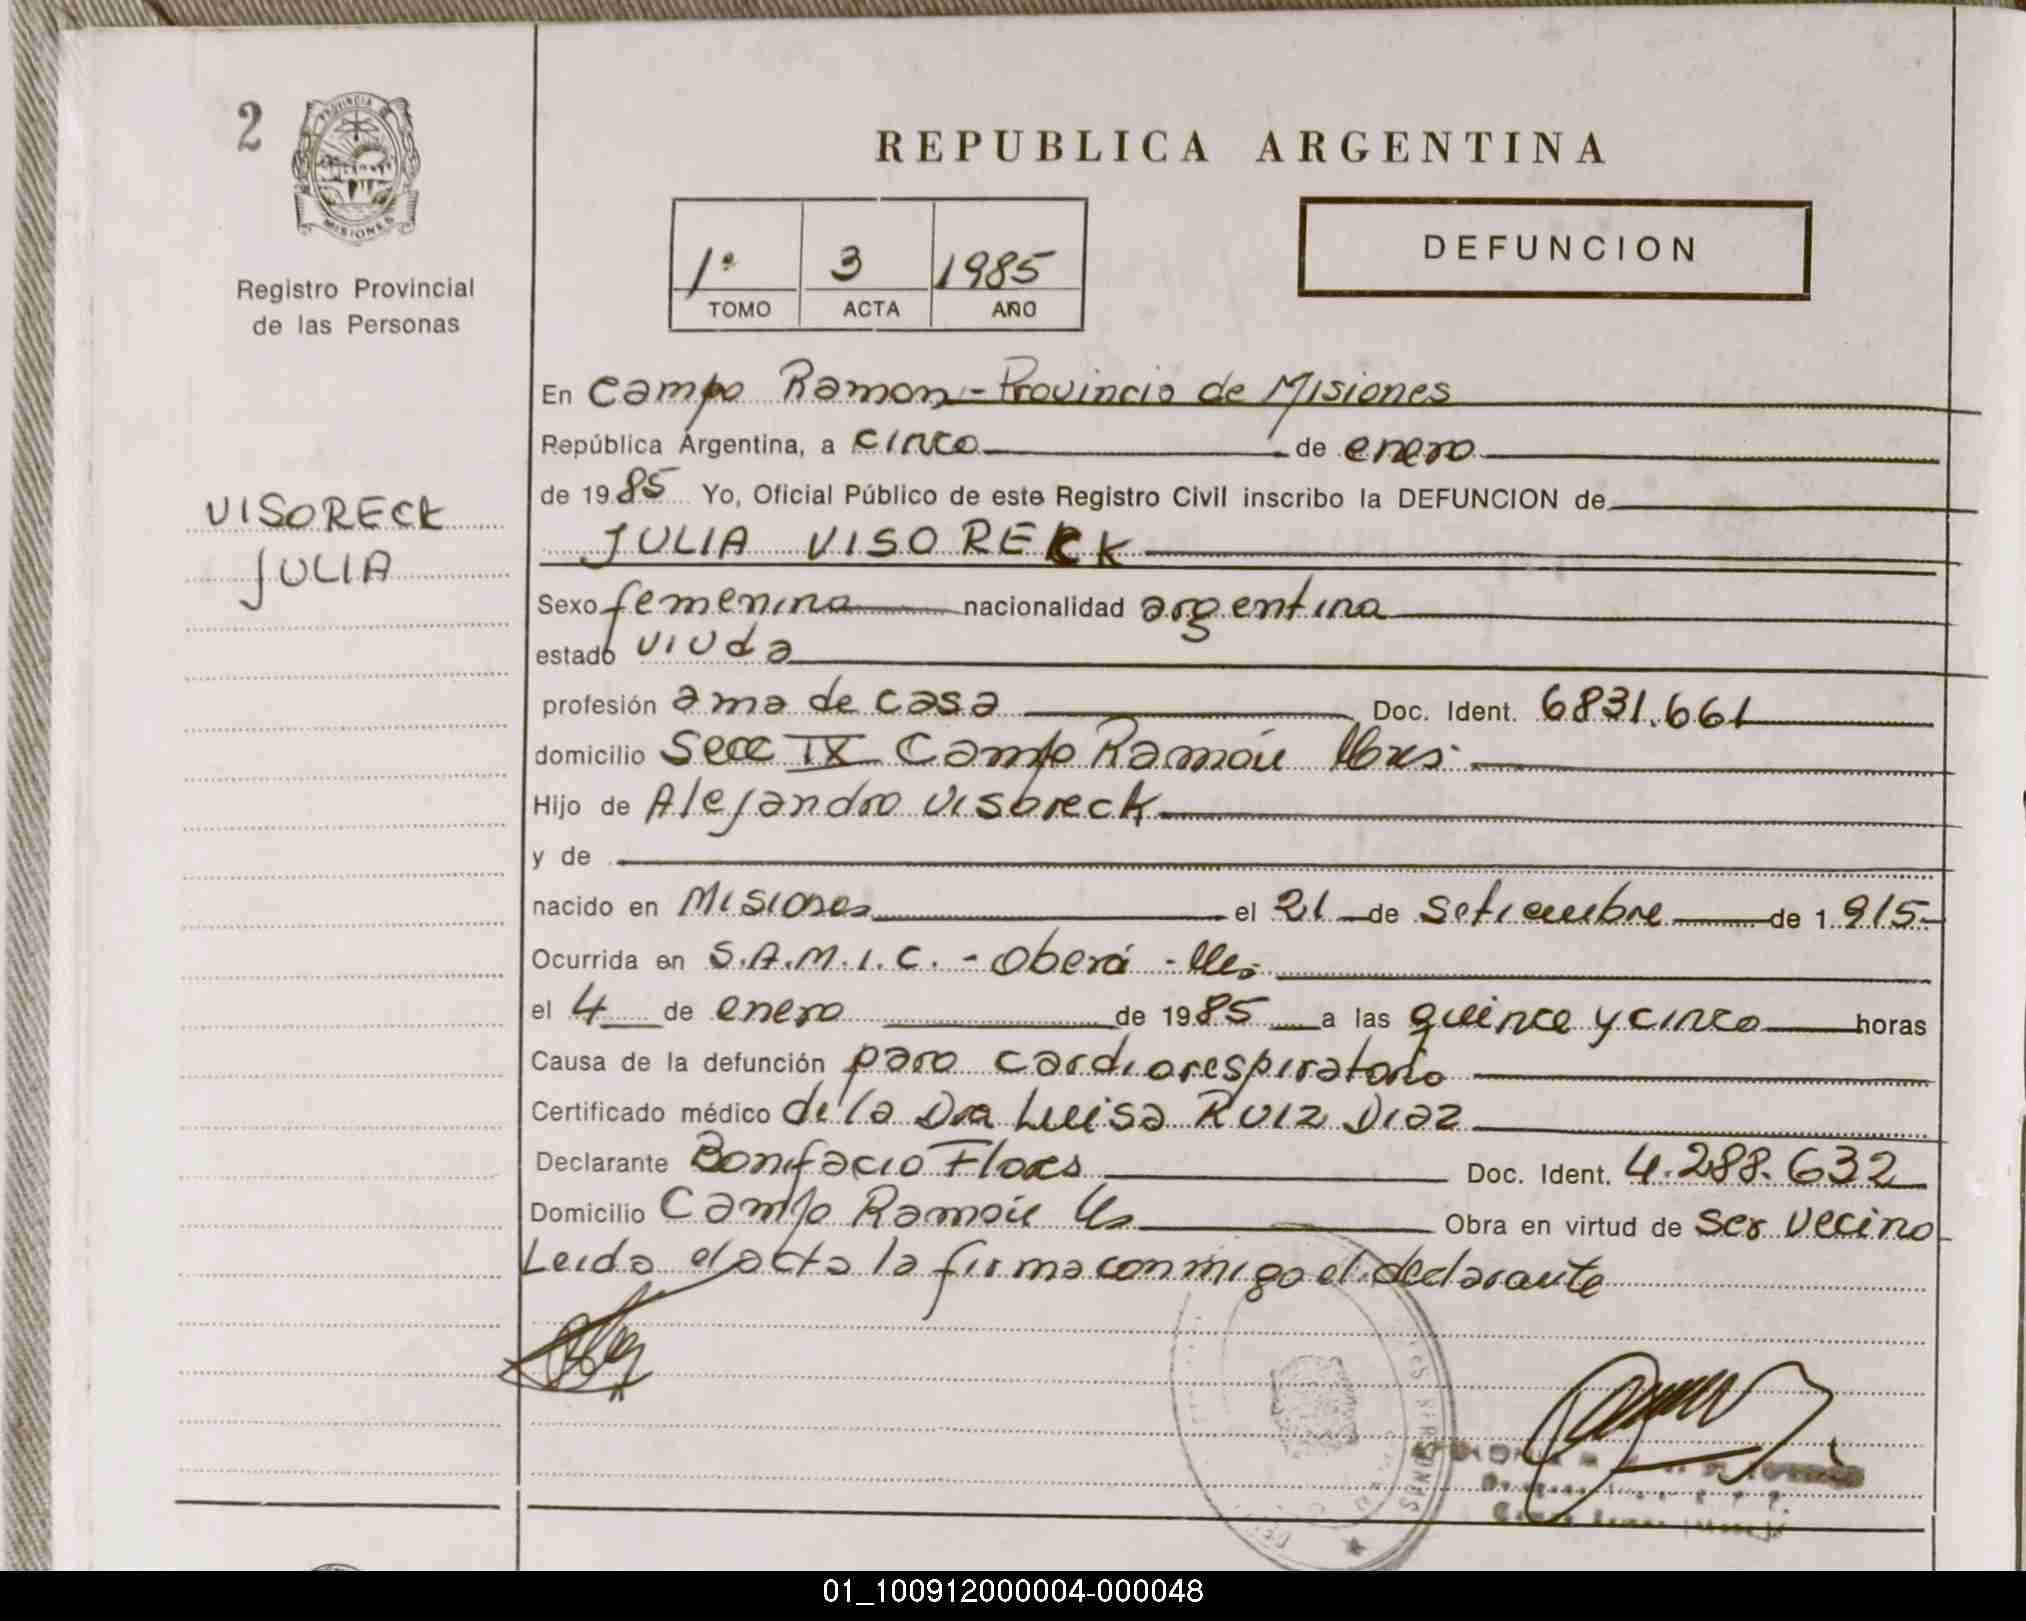 2
PROVINCIA DE
MISIONES
Registro Provincial
de las Personas
VISORECK
JULIA
REPUBLICA ARGENTINA
1º 3 1985
TOMO ACTA AÑO
DEFUNCION
En Campo Ramon - Provincia de Misiones
República Argentina, a cinco de enero
de 1985 Yo, Oficial Público de este Registro Civil inscribo la DEFUNCION de
JULIA VISORECK
Sexo femenina nacionalidad argentina
estado viuda
profesión ama de casa Doc. Ident. 6831.661
domicilio Secc IX Campo Ramón
Hijo de Alejandro Visoreck
y de
nacido en Misiones el 21 de Setiembre de 1.915-
Ocurrida en S.A.M.I.C. - Oberá -
el 4 de enero de 1985 a las quince y cinco horas
Causa de la defunción paro cardiorespiratorio
Certificado médico de la Dra Luisa Ruiz Diaz
Declarante Bonifacio Flores Doc. Ident. 4.288.632
Domicilio Campo Ramón Obra en virtud de ser vecino
Leida el acta la firma conmigo el declarante
MISIONES
01_100912000004-000048